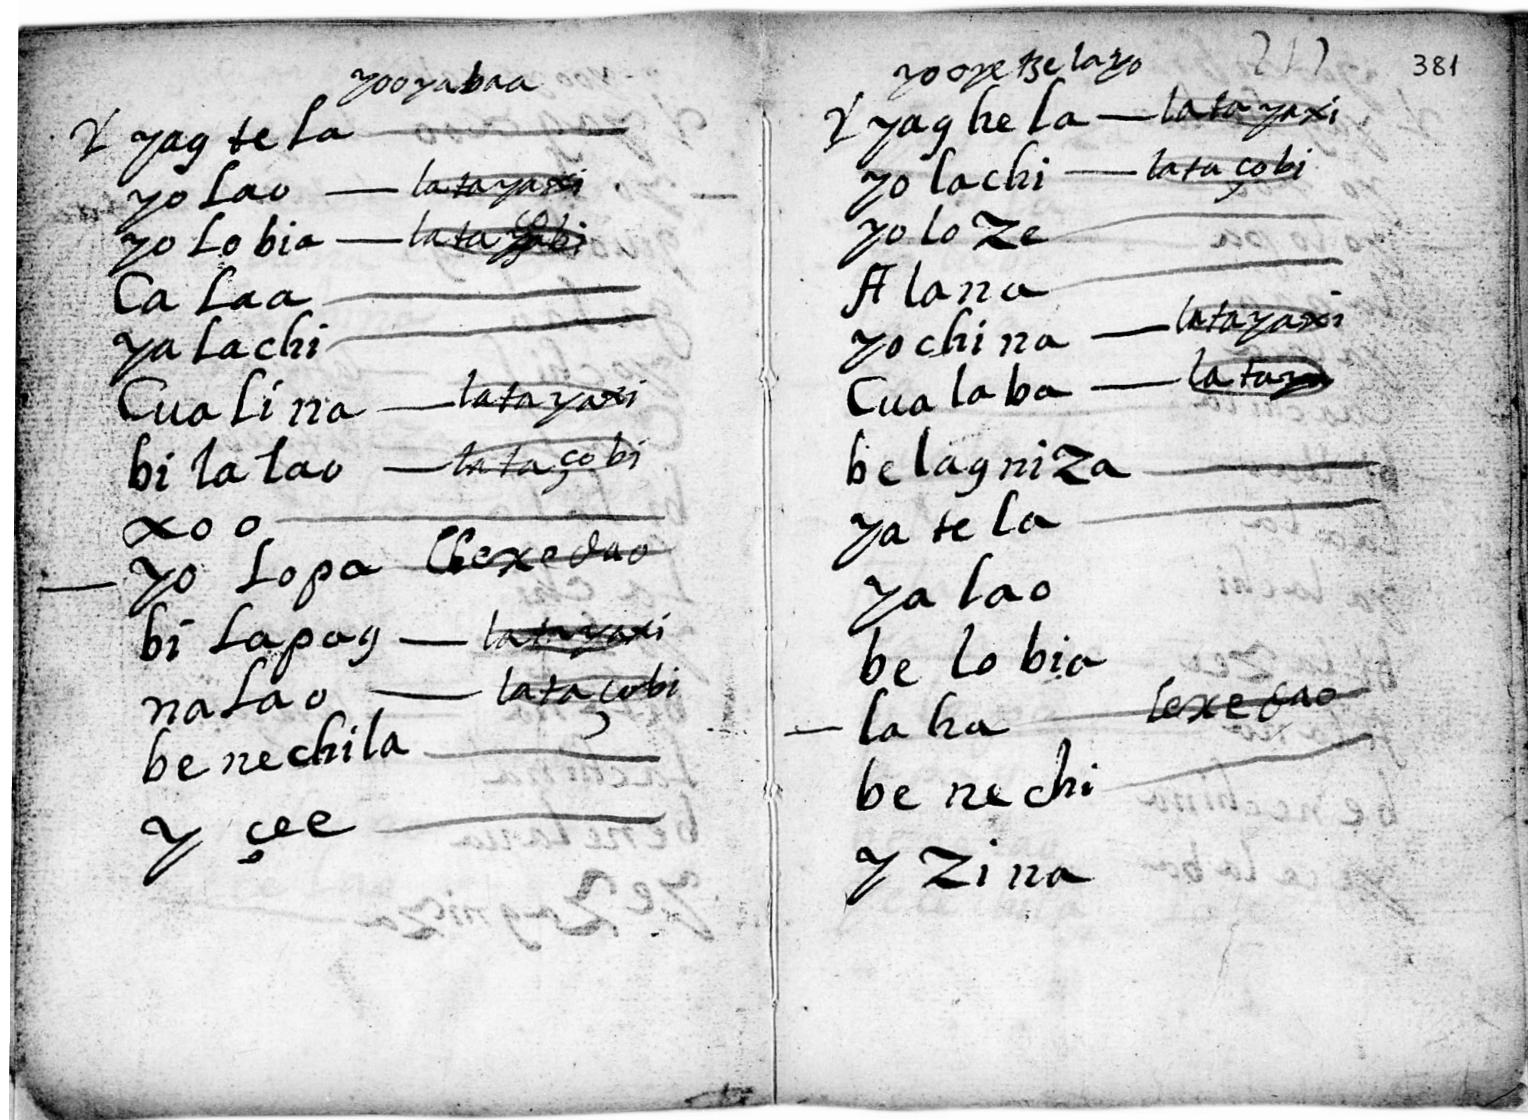 yooyabaa
Y yag te la
yo Lao — latayaxi
yo Lo bia — lata çobi
Ca Laa
ya Lachi
Cua Li na — latayaxi
bi la lao — lata çobi
xoo
— yo Lopa lhexe dao
bi Lapag — latayaxi
na Lao — lata çobi
be nechila
Y çee
yooyetzelayo
381
Y yag he la — latayaxi
yo lachi — lata çobi
yo lo Ze
A la na
yo chi na — latayaxi
Cua la ba — lataya
be lag ni Za
ya te la
ya lao
be lo bia
— la ha lexe dao
be ne chi
Y Zi na